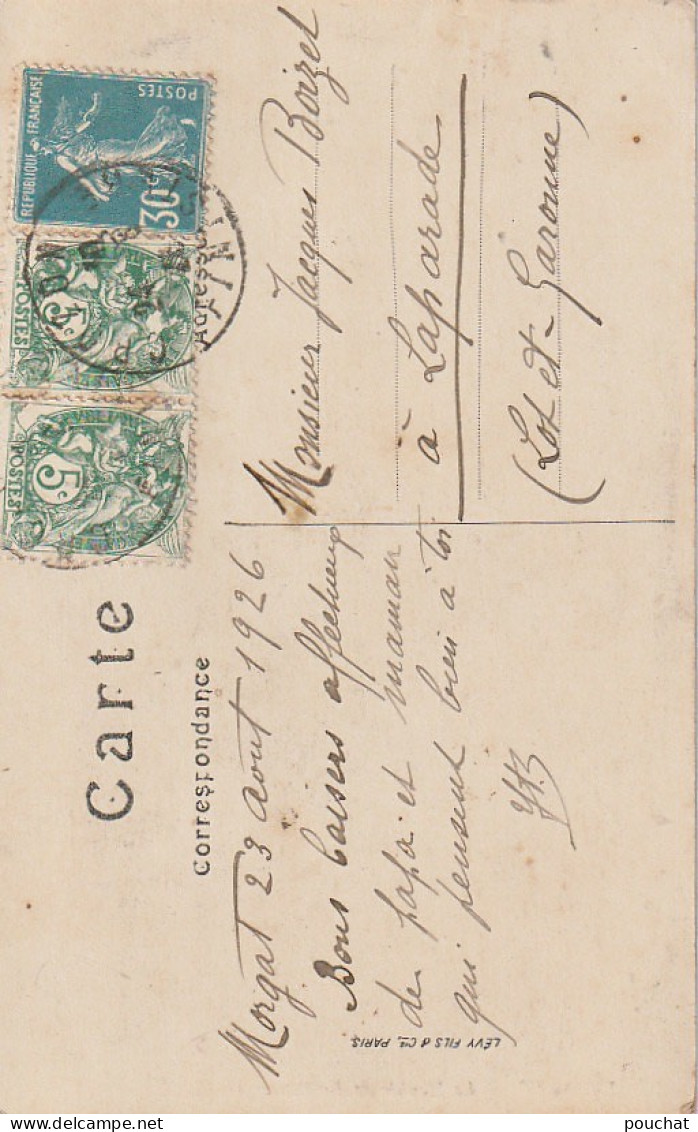 Carte
Correspondance
Adresse
REPUBLIQUE FRANÇAISE
POSTES
30c
5c
POSTES
5c
POSTES
Morgat 23 août 1926
Bons baisers affectueux
de papa et maman
qui pensent bien à toi
Monsieur Jacques Boizet
à Laparade
(Lot et-Garonne)
LÉVY FILS & Cie, PARIS
pouchat
www.delcampe.net